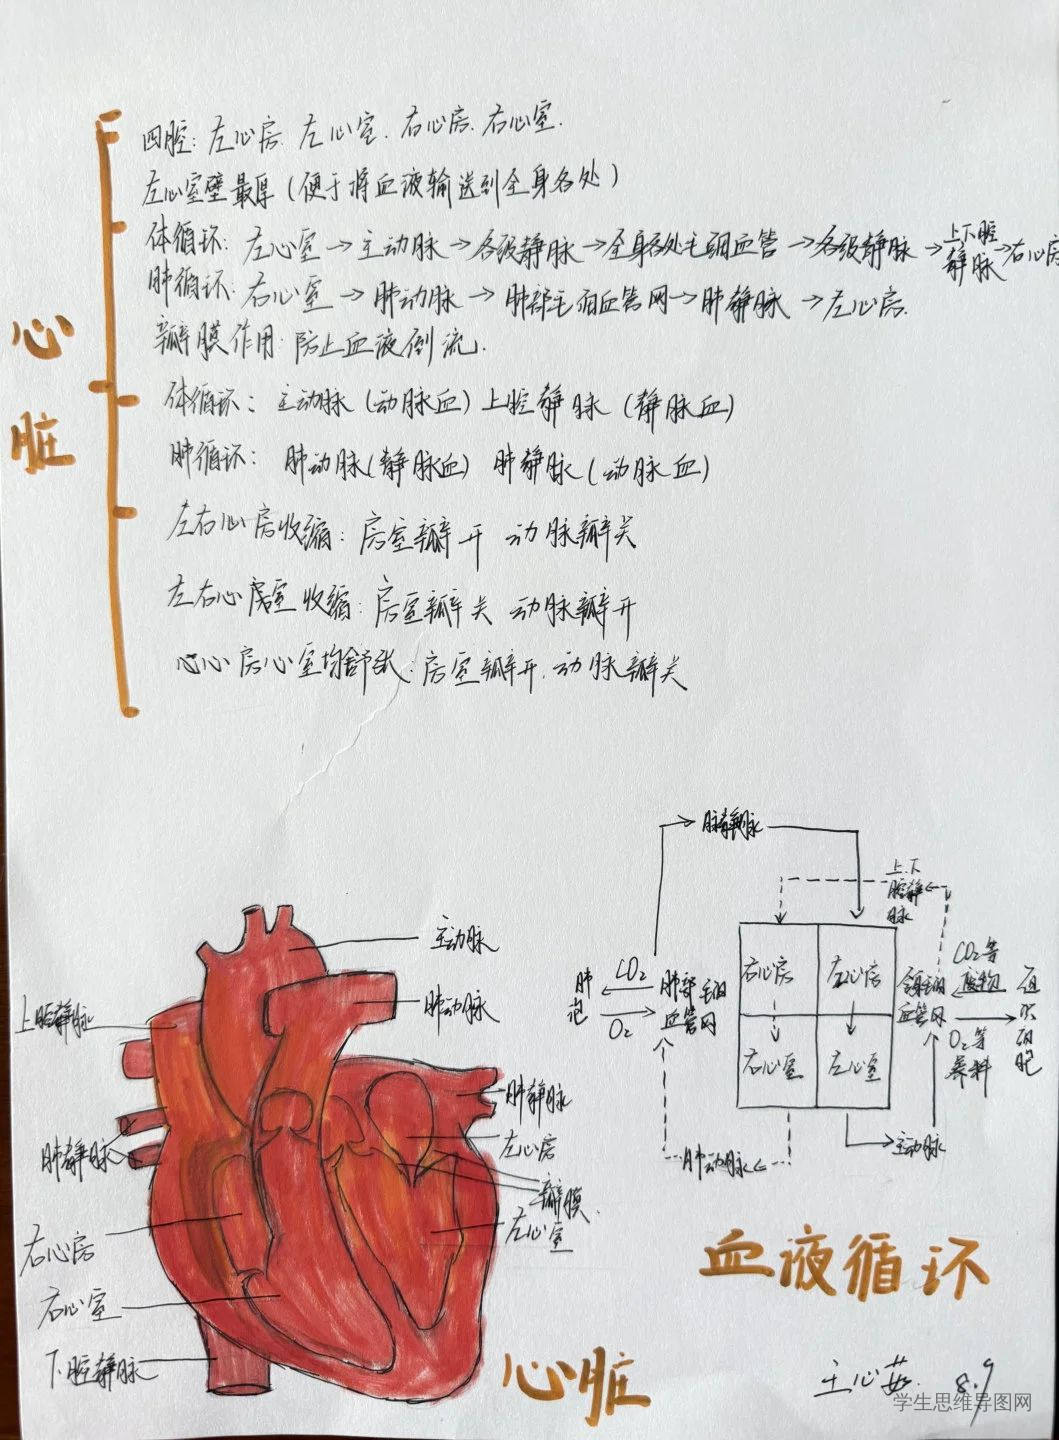 心脏
四腔：左心房、左心室、右心房、右心室.
左心室壁最厚（便于将血液输送到全身各处）
体循环：左心室→主动脉→各级静脉→全身各处毛细血管→各级静脉→上下腔静脉→右心房
肺循环：右心室→肺动脉→肺部毛细血管网→肺静脉→左心房.
瓣膜作用：防止血液倒流.
体循环：主动脉（动脉血）上腔静脉（静脉血）
肺循环：肺动脉（静脉血） 肺静脉（动脉血）
左右心房收缩：房室瓣开 动脉瓣关
左右心室收缩：房室瓣关 动脉瓣开
心房心室均舒张：房室瓣开.动脉瓣关
主动脉
肺动脉
上腔静脉
肺静脉
左心房
瓣膜.
左心室
肺静脉
右心房
右心室
下腔静脉
心脏
肺静脉
上.下腔静脉
肺泡
CO₂
O₂
肺部毛细血管网
右心房
左心房
右心室
左心室
血管网
CO₂等废物
O₂等养料
肺动脉
主动脉
血液循环
王心茹 8.9
学生思维导图网